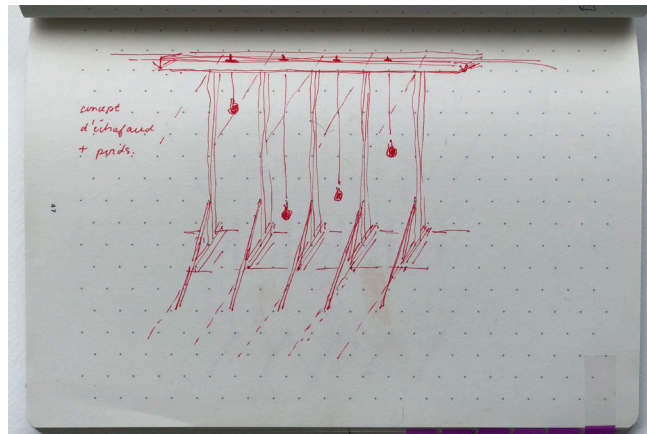 concept
d'échafaud
+ poids.
47